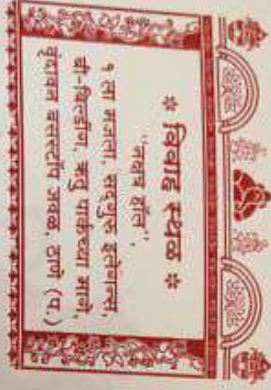 * विवाह स्थळ *
"नक्षत्र हॉल"
१ ला मजला, सद्‌गुरु इलेगन्स,
बी-बिल्डींग, ऋतु पार्कच्या मागे,
वृंदावन बसस्टॉप जवळ, ठाणे (प.)